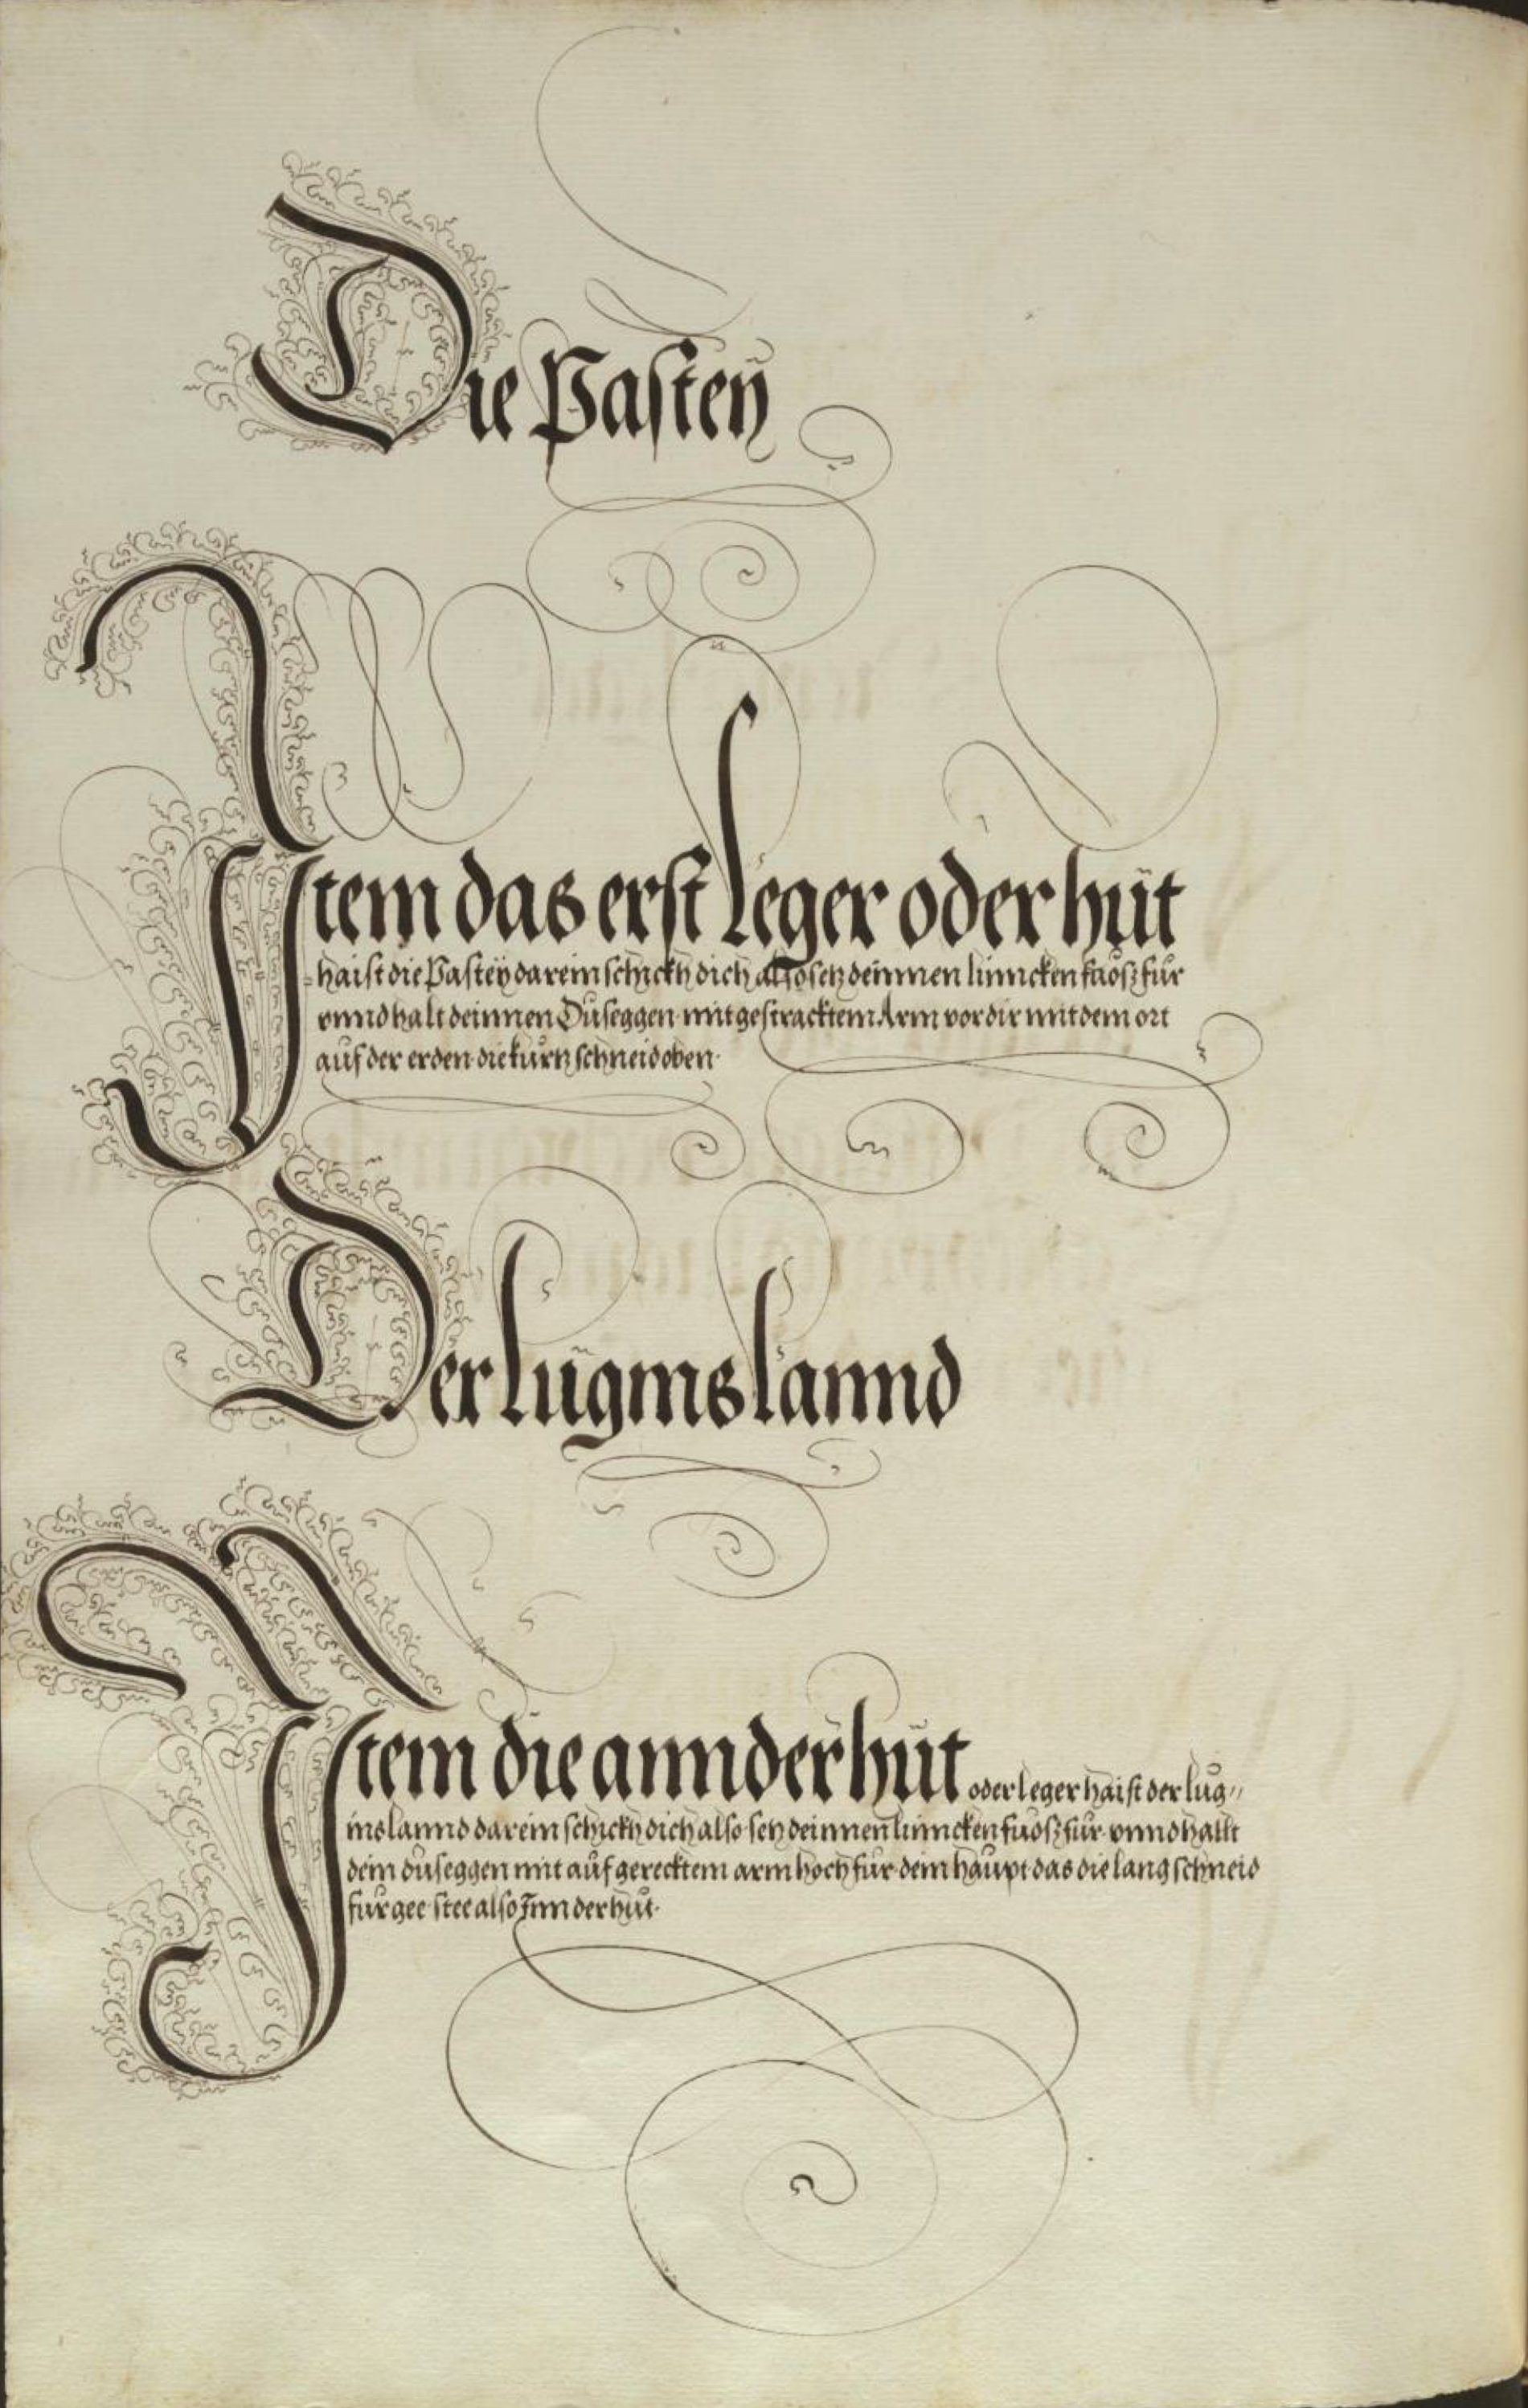 Die Pasteÿ
Item das erst leger oder hůt
haist die Pasteÿ darein schickh dich also setz deinnen linncken fůosz fůr
vnnd halt deinnen Důseggen mit gestracktem Arm vor dir mit dem ort
auf der erden die kůrtz schneid oben
Der lůgms lannd
Item die annder hůt oder leger haist der lůg〃
ins lannd darein schickh dich also setz deinnen linncken fůosz fůr vnnd hallt
dein důseggen mit aůfgerecktem arm hoch fůr dein haůpt das die lang schneid
fůr gee stee also Inn der hůt